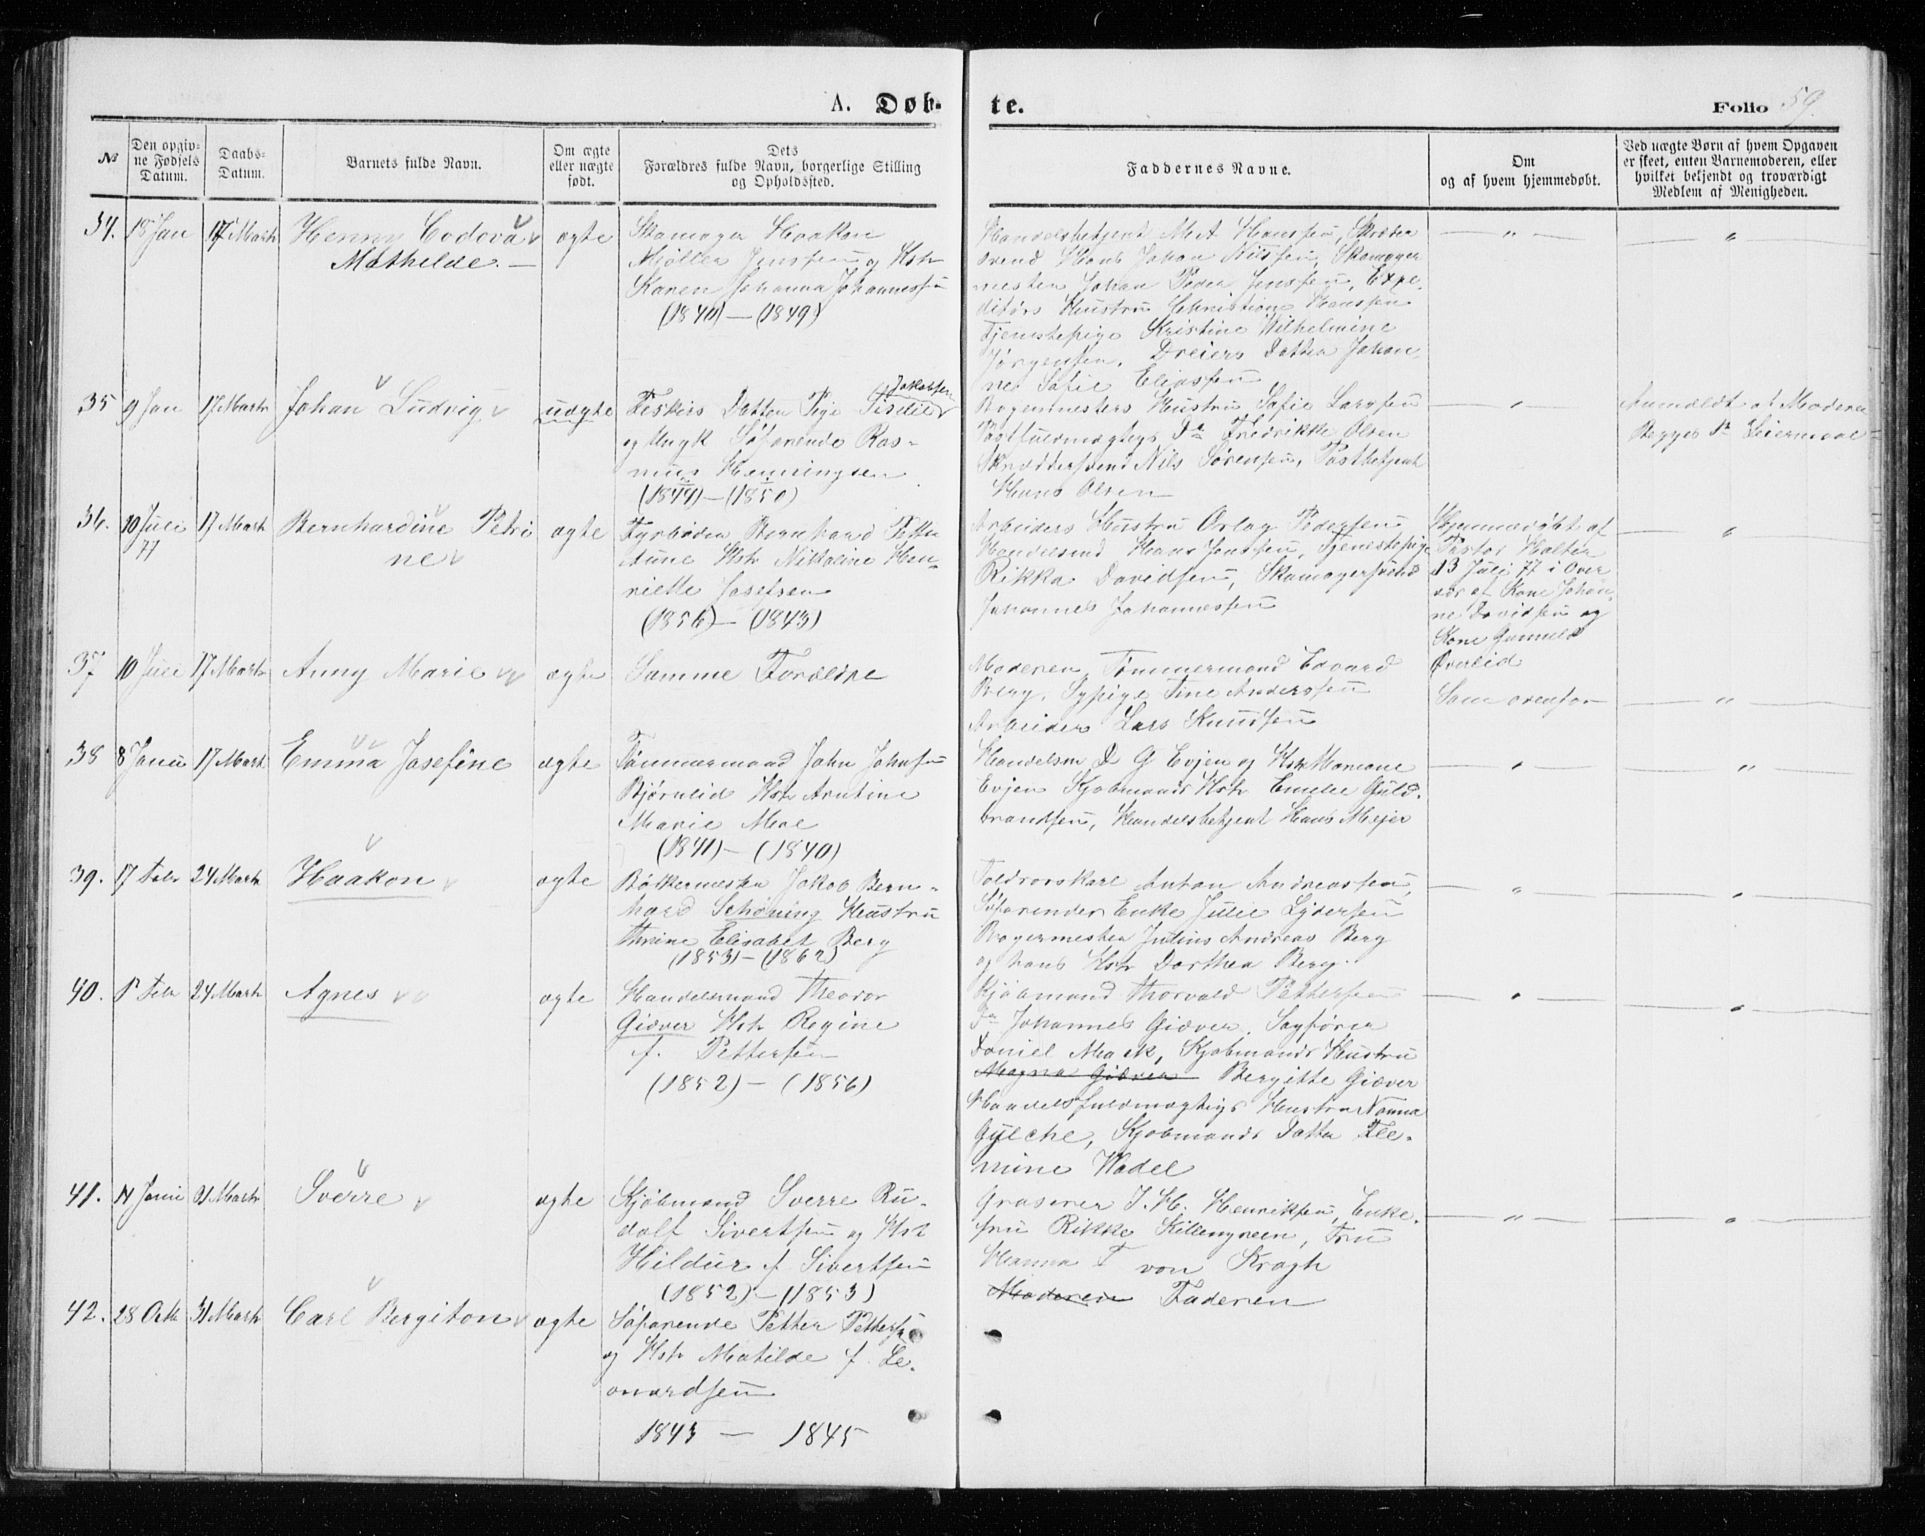 A. Døb- te.
Folio 59.
No
Den opgivne Fødsels Datum.
Daabs-Datum.
Barnets fulde Navn.
Om ægte eller uægte født.
Dets Forældres fulde Navn, borgerlige Stilling og Opholdssted.
Faddernes Navne.
Om og af hvem hjemmedøbt.
Ved uægte Børn af hvem Opgaven er skeet, enten Barnemoderen, eller hvilket bekjendt og troværdigt Medlem af Menigheden.
34. 18 Jan 17 Marts
Mathilde. ægte
Skomager Haakon
Møller Jenssen og Hstr
Karen Johanna Johannessen
(1840) — (1849)
Handelsbetjent M A Hanssen, Skrædder
svend Hans Johan Nilssen, Skomager
mester Johan Peder Jenssen, Expe-
ditørs Hustru Christiane Hanssen
Tjenestepige Kristine Wilhelmine
Jørgensen. Dreiers Datter Johan-
ne Sofie Eliassen
35 9 Jan 17 Marts Johan Ludvig uægte
Fiskers Datter Pige Jakobsen
og Ungk Søfarende Ras-
mus Henningsen
(1844) — (1850)
Bogermesters Hustru Sofie Larssen
Postfuldmægtigs Do Fredrikke Olsen
Skræddersvend Nils Sørensen, Postbetjent
Hans Olsen
Anmeldt af Moderen
Begges 1ste Leiermaal
36. 10 Juli 77 17 Marts Bernhardine Petri
ne ægte
Fyrbøder Bernhard Petter
Hstr Nikoline Hen-
riette Josefsen
(1856) — (1843)
Arbeiders Hustru Pedersen
Handelsmd Hans Jenssen, Tjenestepige
Rikka Davidsen, Skomagersvend
Johannes Johannessen
Hjemmedøbt af
Pastor Holter
13 Juli 77 i Over
vær af Kone Johan
ne Davidsen og
Kone Gunnild
Øverlid
37 10 Juli 17 Marts Anny Marie ægte
Samme Forældre
Moderen, Tømmermand Edvard
Berg, Sypige Tine Anderssen
Arbeider Lars Knudsen
Som ovenfor
38 8 Janu 17 Marts Emma Josefine ægte
Tømmermand John Johnsen
Bjørnlid Hstr Arntine
Marie Moe
(1841) — (1840)
Handelsm D G Evjen og Hstr Mariane
Evjen Kjøbmands Hstr Emelie Guld-
brandsen, Handelsbetjent Hans Mejer
39. 17 Febr 24 Marts Haakon ægte
Bøkkermester Jakob Bern-
hard Schøning Hustru
Thrine Elisabet Berg
(1853) — (1862)
Toldrorskarl Anton Andreassen,
Søfarendes Enke Julie Lydersen
Bogermester Julius Andreas Berg
og hans Hstr Dorthea Berg.
40. 1ste Febr 24 Marts Agnes ægte
Handelsmand Theodor
Giæver Hstr Regine
f. Pettersen
(1852) — (1856)
Kjøbmand Thorvald Pettersen
Do Johannes Giæver, Sagfører
Daniel Mack, Kjøbmands Hustru
Magna Giæver Bergitte Giæver
Handelsfuldmægtigs Hustru Nanna
Gylche, Kjøbmands Datter Fle-
mine Wadel
41. 14 Janu 31 Marts Sverre ægte
Kjøbmand Sverre Ru-
dolf Sivertsen og Hstr
Hildur f Sivertsen
(1852) — (1853)
Grosserer J. H. Henriksen, Enke-
fru Rikke Killengreen, Fru
Hanna F von Krogh
Moderen Faderen
42. 28 Oct 31 Marts Carl Bergiton ægte
Søfarende Petter Pettersen
og Hstr Matilde f. Le-
onardsen
1843 — 1845